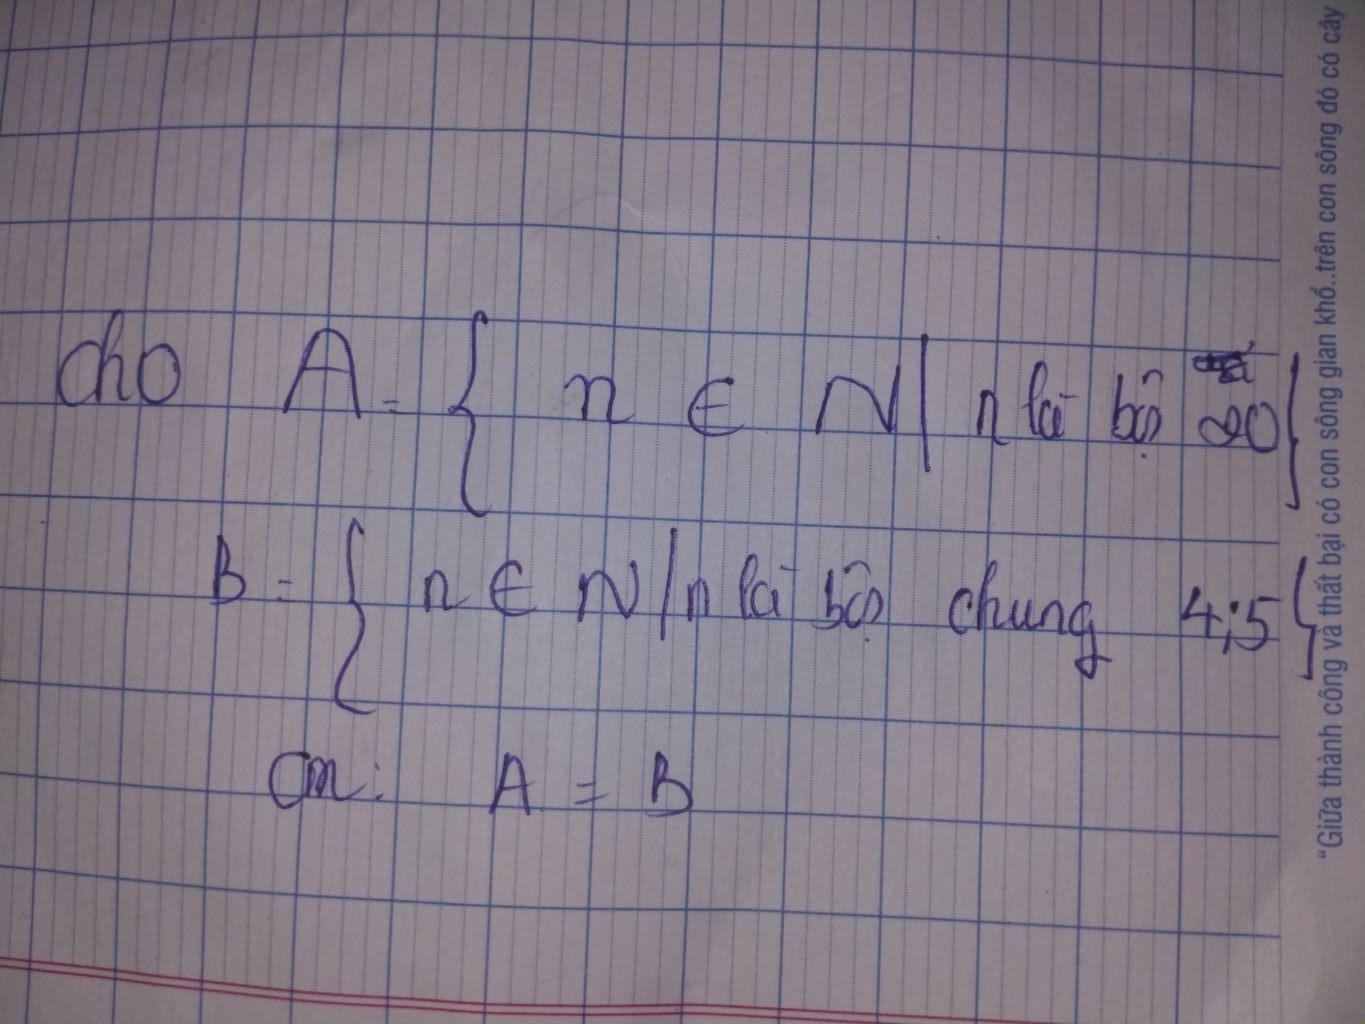 Cho A = { n ∈ N | n là bội 20 }
B = { n ∈ N / n là bội chung 4;5 }
Cm: A = B
"Giữa thành công và thất bại có con sông gian khổ..trên con sông đó có cây